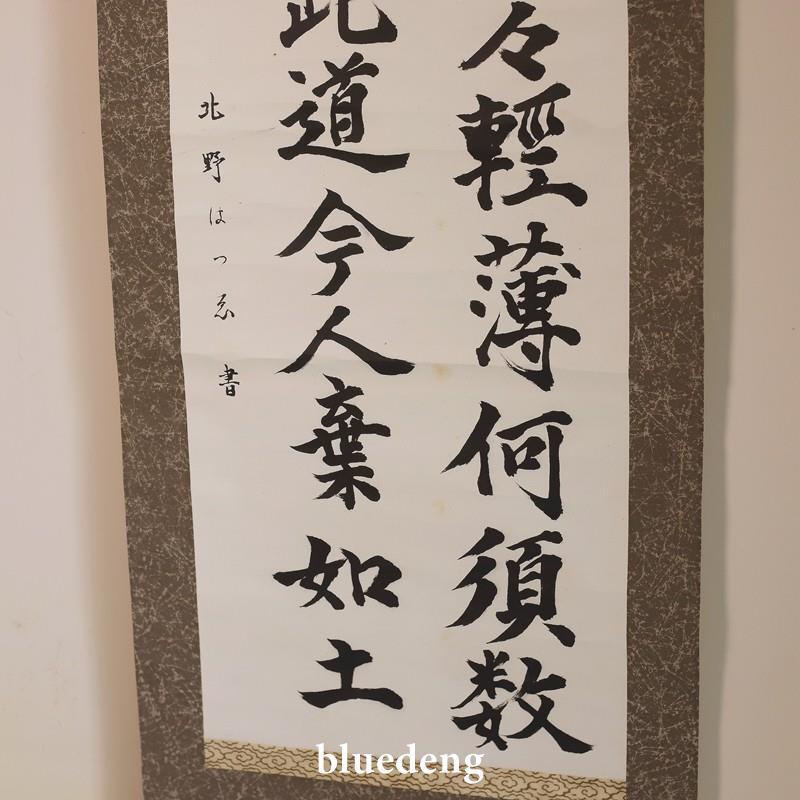 々輕薄何須数
此道今人棄如土
北野はつゑ書
bluedeng